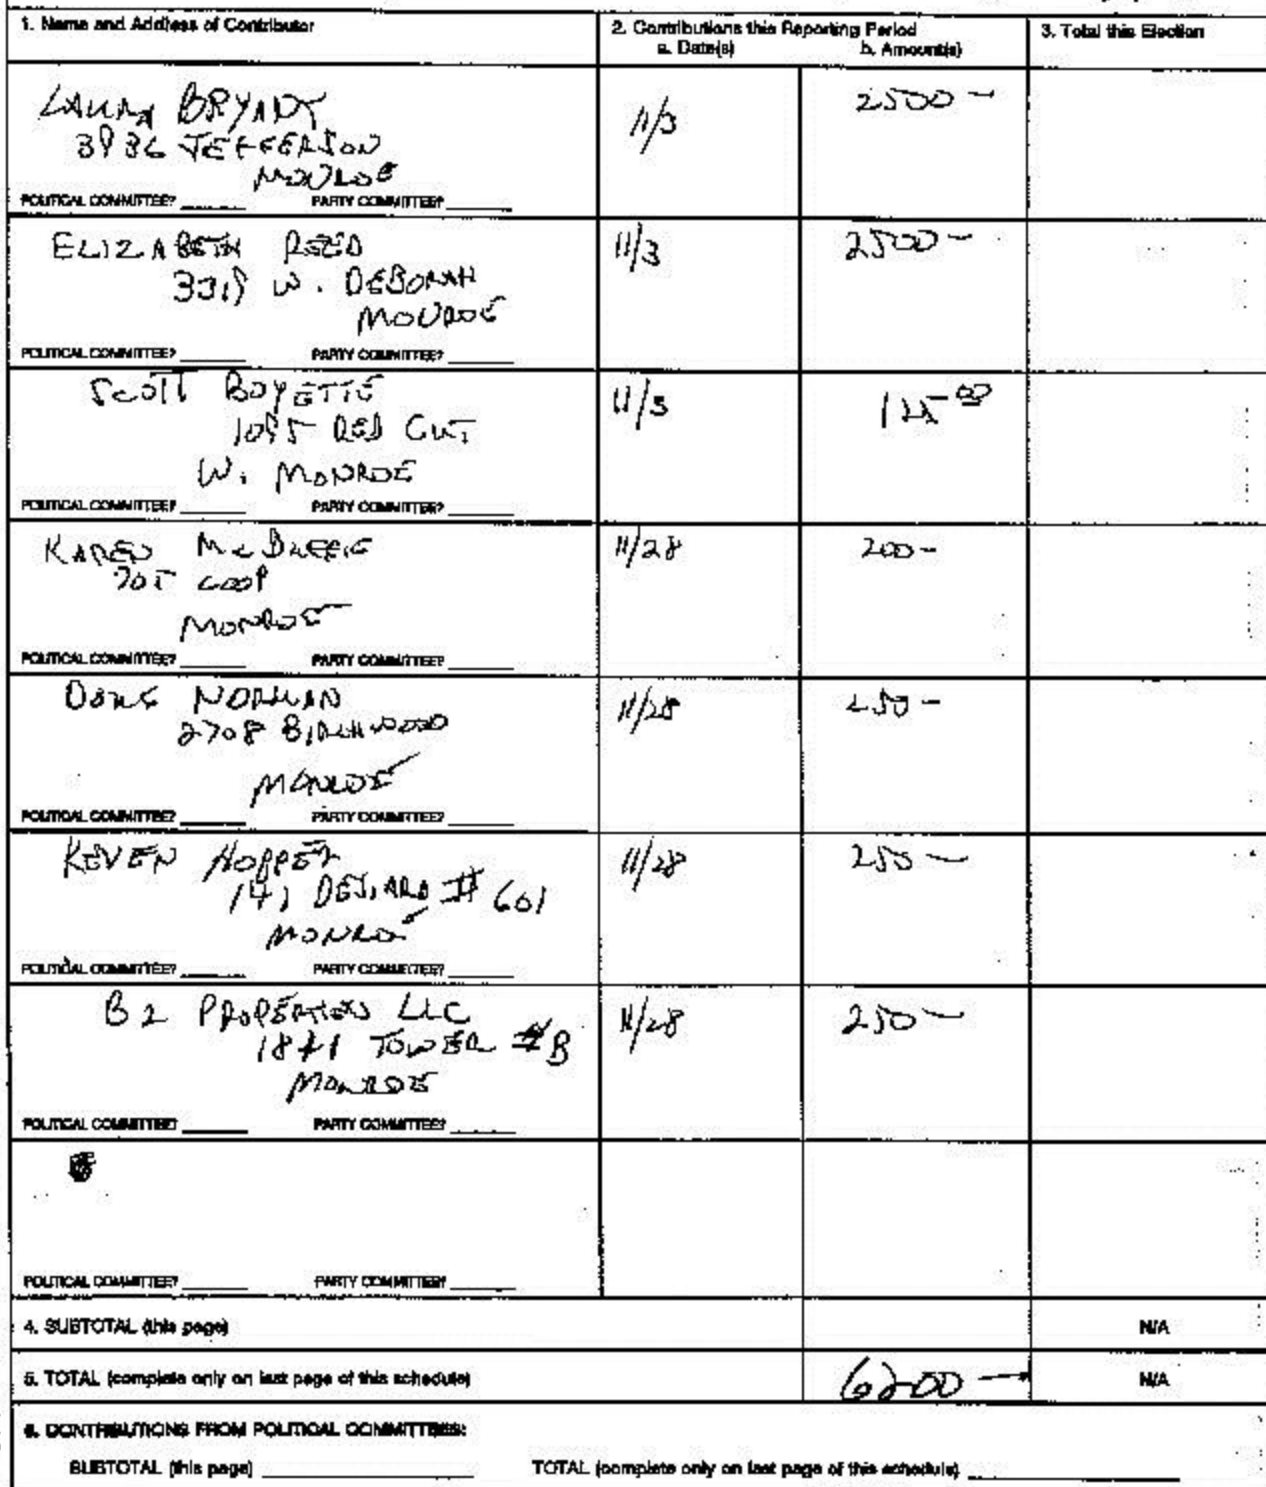 1. Name and Address of Contributor
2. Contributions this Reporting Period
a. Date(s) b. Amount(s)
3. Total this Election
LAURA BRYANT
3936 JEFFERSON
MONROE
11/3
2500 -
POLITICAL COMMITTEE? ______ PARTY COMMITTEE? ______
ELIZABETH REED
W. DEBORAH
MONROE
11/3
2500 -
POLITICAL COMMITTEE? ______ PARTY COMMITTEE? ______
SCOTT BOYETTE
1095 RED CUT
W. MONROE
11/3
POLITICAL COMMITTEE? ______ PARTY COMMITTEE? ______
KAREN
705 LOOP
MONROE
11/28
200 -
POLITICAL COMMITTEE? ______ PARTY COMMITTEE? ______
NORMAN
2708 BIRCHWOOD
MONROE
11/28
250 -
POLITICAL COMMITTEE? ______ PARTY COMMITTEE? ______
KEVEN
141 DESIARD # 601
MONROE
11/28
250 -
POLITICAL COMMITTEE? ______ PARTY COMMITTEE? ______
B2 PROPERTIES LLC
1841 TOWER # B
MONROE
11/28
250 -
POLITICAL COMMITTEE? ______ PARTY COMMITTEE? ______
POLITICAL COMMITTEE? ______ PARTY COMMITTEE? ______
4. SUBTOTAL (this page) N/A
5. TOTAL (complete only on last page of this schedule) 6200 - N/A
6. CONTRIBUTIONS FROM POLITICAL COMMITTEES:
SUBTOTAL (this page) ______ TOTAL (complete only on last page of this schedule) ______